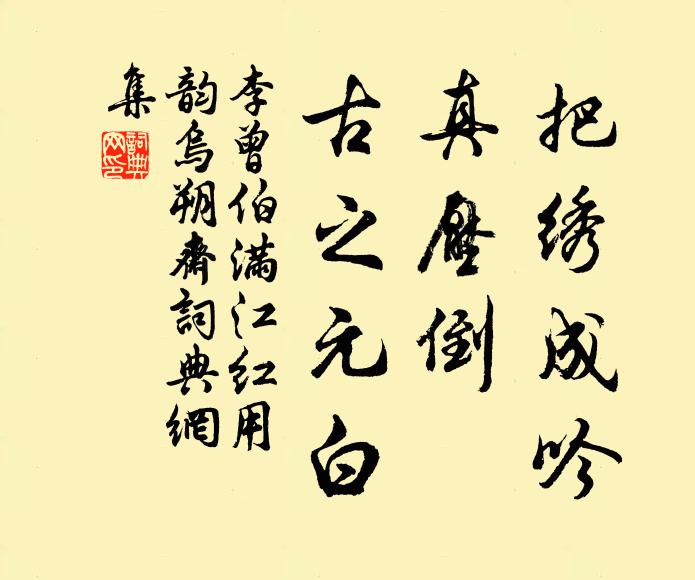 把绣成吟
真压倒
古之元白
李曾伯满江红用
韵乌朔斋詞典網
集
詞典網印